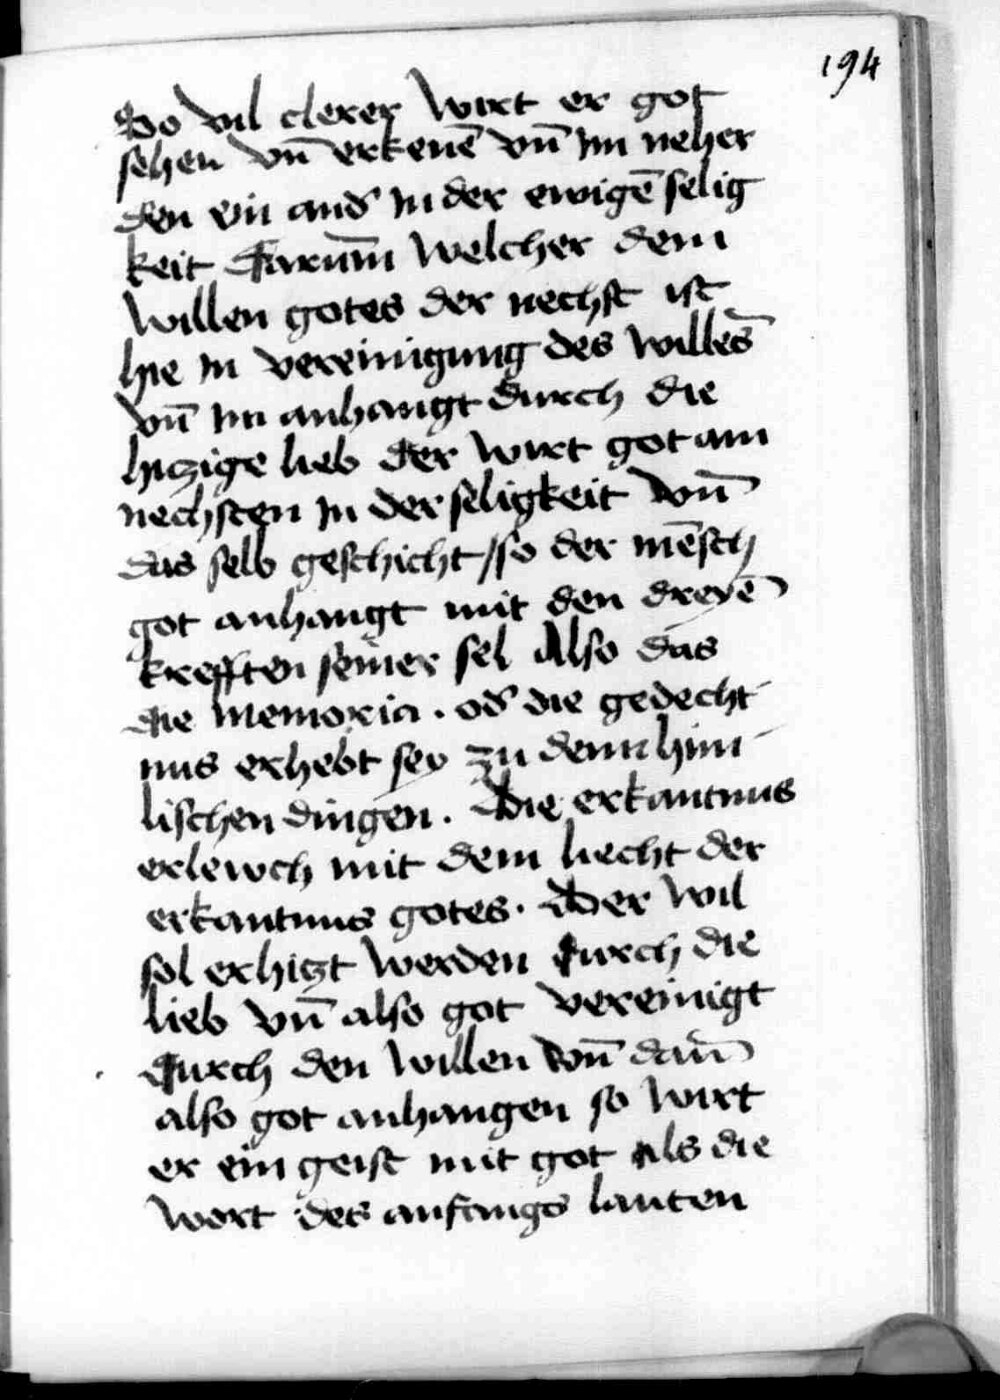 194
So vil clerer wirt er got
sehen vn̄ erkenē vn̄ im neher
den ein and' in der ewigē selig
keit Darum̄ welcher dem
willen gotes der nechst ist
hie in vereinigung des willes̄
vn̄ im anhangt durch die
hiczige lieb der wirt got am
nechsten in der seligkeit vn̄
das selb geschicht / so der mēsch
got anhangt mit den dreyē
krefften seiner sel Also das
die memoria . od' die gedecht
nus erhebt sey zu denn him
lischen dingen . Die erkantnus
erlewch mit dem liecht der
erkantnus gotes . Der wil
sol erhiczt werden durch die
lieb vn̄ also got vereinigt
durch den willen vn̄ dan̄
also got anhangen so wirt
er ein geist mit got als die
wort des anfangs lauten